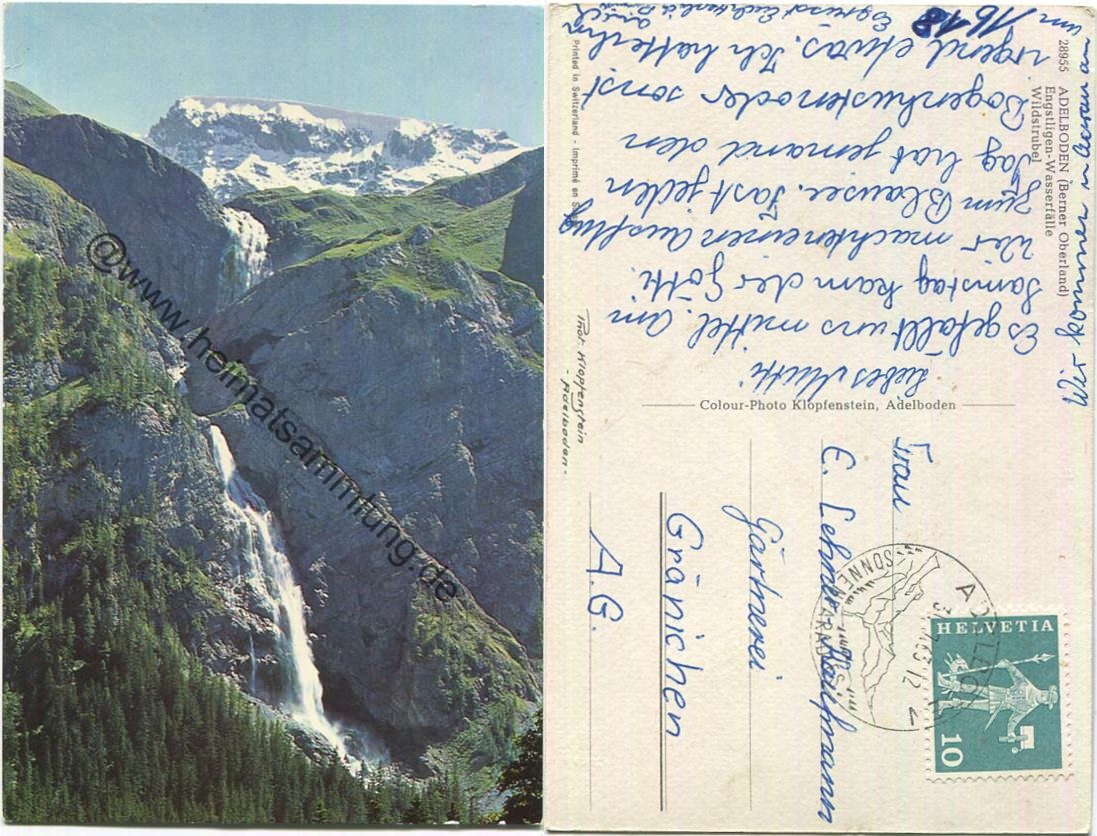 @www.heimatsammlung.de
28955 ADELBODEN (Berner Oberland)
Engstligen-Wasserfälle
Wildstrubel
Printed in Switzerland - Imprimé en S
Phot. Klopfenstein
- Adelboden -
Colour-Photo Klopfenstein, Adelboden
Liebes Mutti
Es gefällt uns mittel. Am
Samstag kam der Götti.
Wir machten einen Ausflug
zum Blausee. Fast jeden
Tag hat jemand den
Bogenhusten oder sonst
irgend etwas. Ich hatte ihn
auch
Wir kommen in Aarau an
um 16
Frau
E. Lehner
Gärtnerei
Gränichen
A.G.
HELVETIA
10